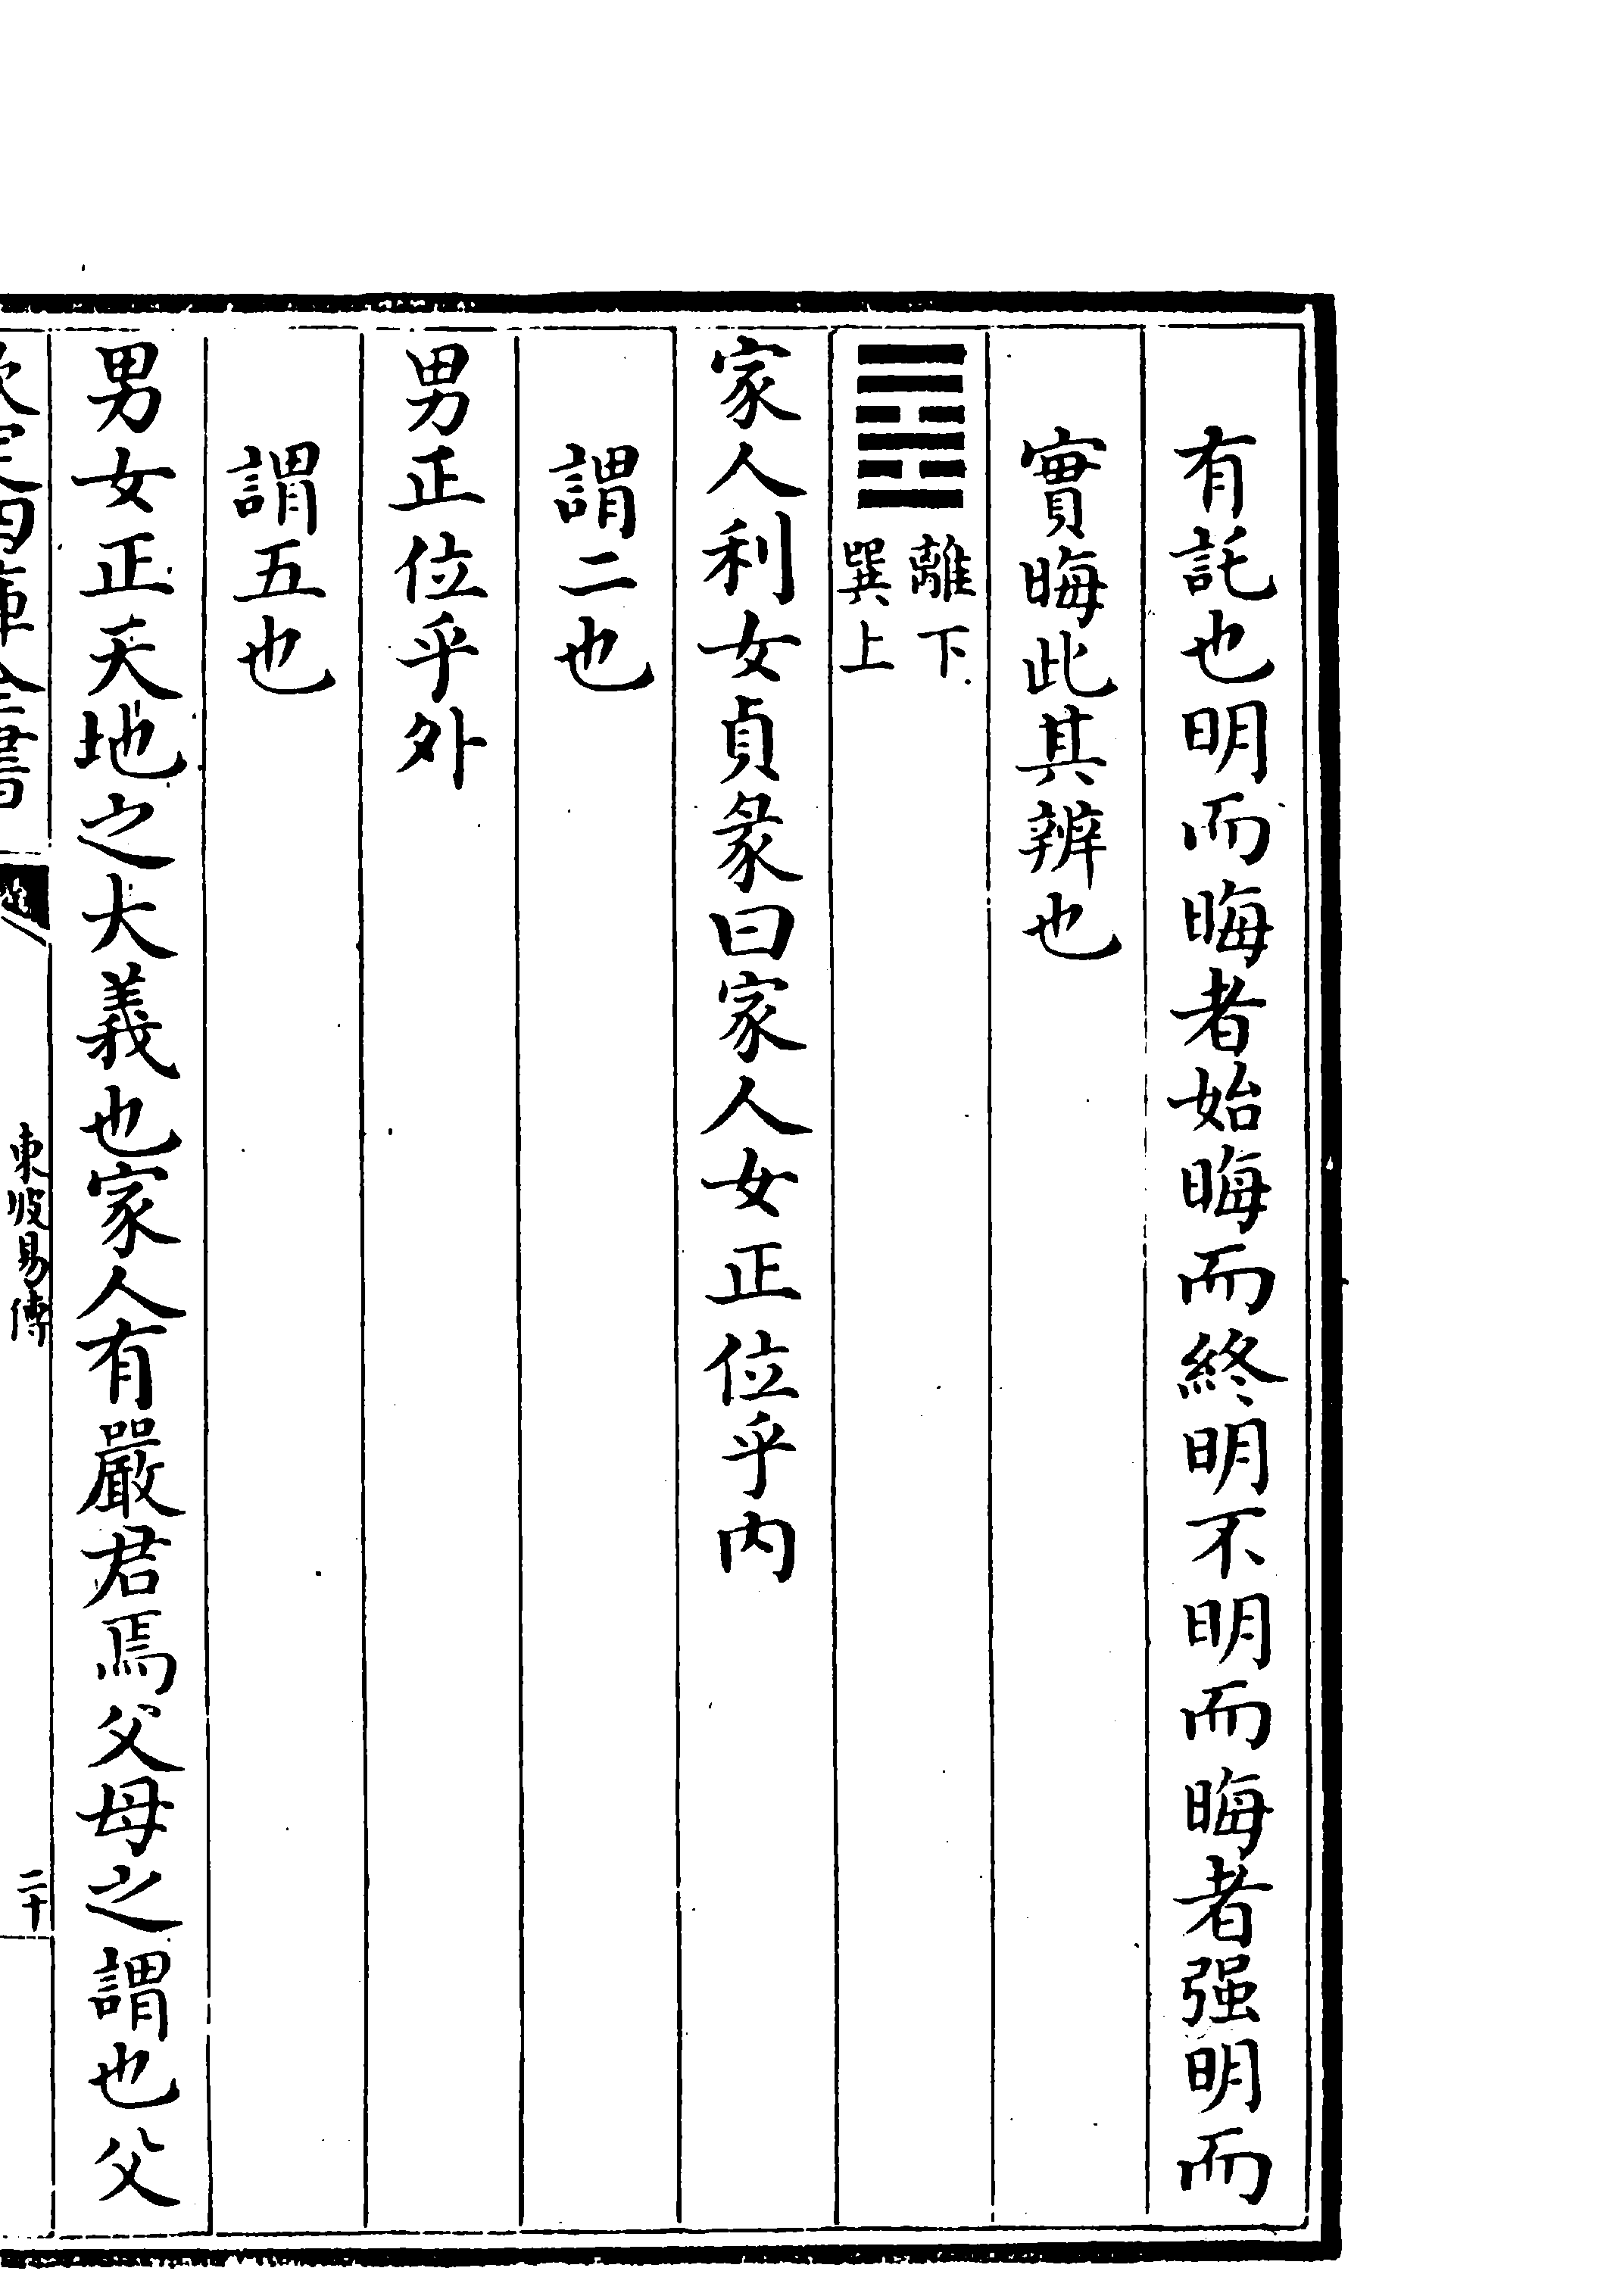 有託也明而晦者始晦而終明不明而晦者强明而
實晦此其辨也
䷤離下巽上
家人利女貞彖曰家人女正位乎內
謂二也
男正位乎外
謂五也
男女正天地之大義也家人有嚴君焉父母之謂也父
欽定四庫全書
東坡易傳
二十